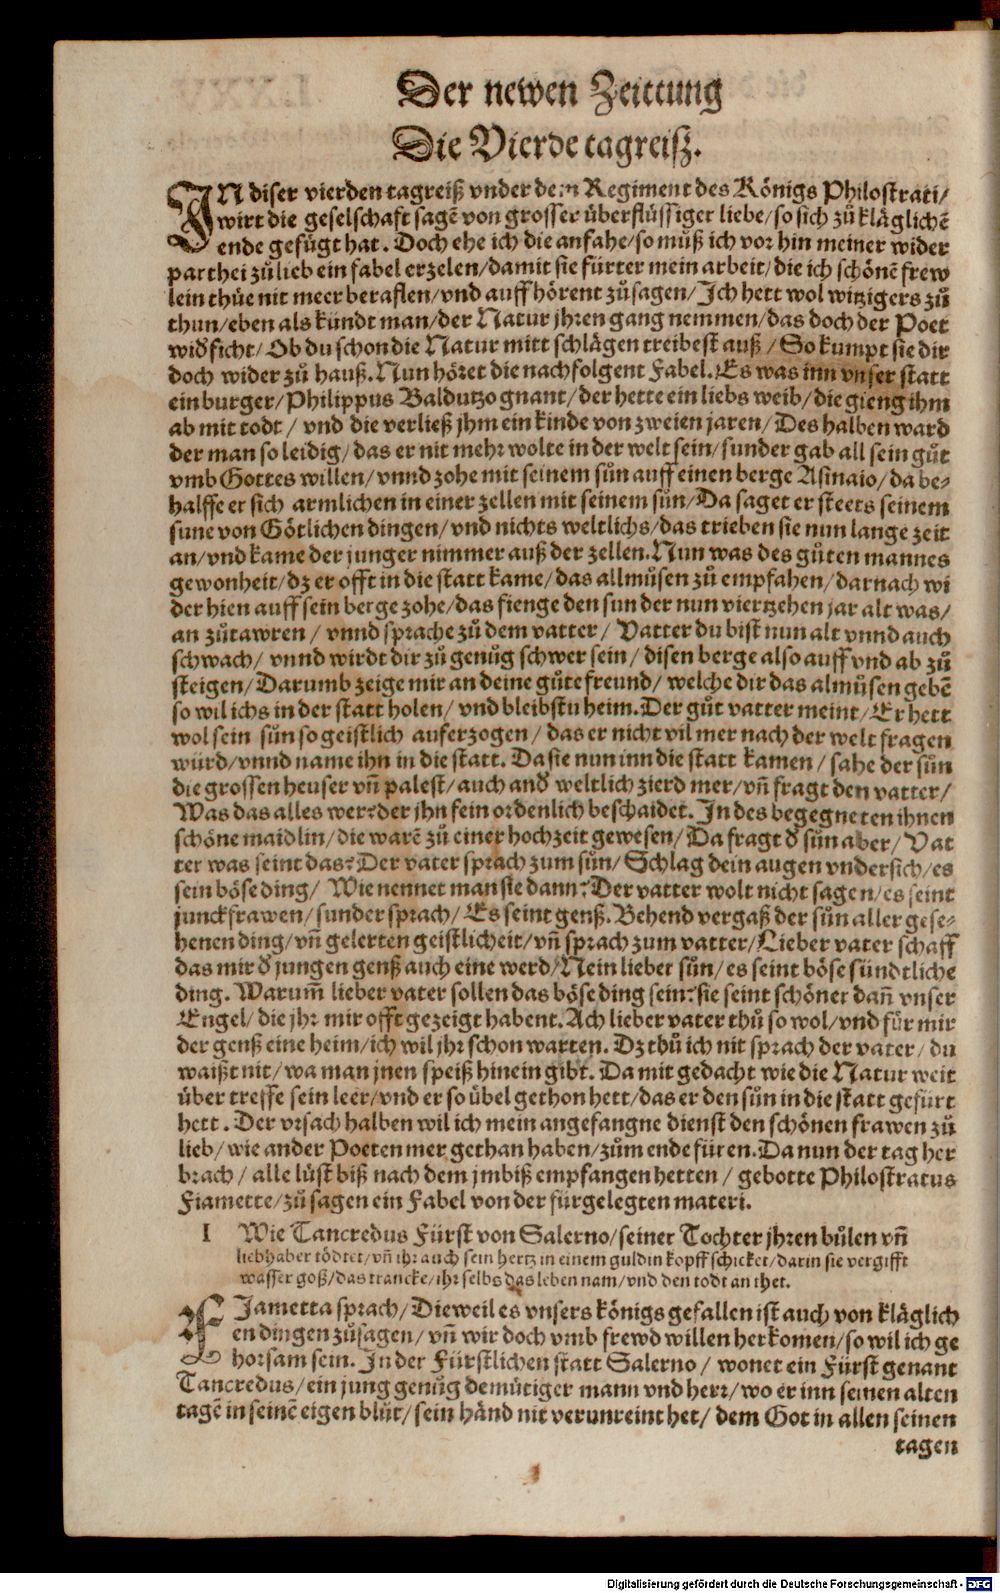 Der newen Zeittung
Die Vierde tagreisz.
IN diser vierden tagreiß vnder dem Regiment des Königs Philostrati/
wirt die geselschaft sagẽ von grosser überflüssiger liebe/so sich zů kläglichẽ
ende gefügt hat. Doch ehe ich die anfahe/so můß ich vor hin meiner wider
parthei zů lieb ein fabel erzelen/damit sie fürter mein arbeit/die ich schönẽ frew
lein thůe nit meer beraflen/vnd auff hörent zů sagen/Ich hett wol witzigers zů
thun/eben als kündt man/der Natur jhren gang nemmen/das doch der Poet
wið ficht/Ob du schon die Natur mitt schlägen treibest auß/So kumpt sie dir
doch wider zů hauß. Nun höret die nachfolgent Fabel. Es was inn vnser statt
ein burger/Philippus Baldutzo gnant/der hette ein liebs weib/die gieng ihm
ab mit todt/vnd die verließ jhm ein kinde von zweien jaren/Des halben ward
der man so leidig/das er nit mehr wolte in der welt sein/sunder gab all sein gůt
vmb Gottes willen/vnnd zohe mit seinem sůn auff einen berge Asinaio/da be-
halffe er sich armlichen in einer zellen mit seinem sůn/Da saget er steets seinem
sune von Götlichen dingen/vnd nichts weltlichs/das trieben sie nun lange zeit
an/vnd kame der junger nimmer auß der zellen. Nun was des gůten mannes
gewonheit/dz er offt in die statt kame/das allmůsen zů empfahen/darnach wi
der hien auff sein berge zohe/das fienge den sun der nun viertzehen jar alt was/
an zůtawren/vnnd sprache zů dem vatter/Vatter du bist nun alt vnnd auch
schwach/vnnd wirdt dir zů genůg schwer sein/disen berge also auff vnd ab zů
steigen/Darumb zeige mir an deine gůte freund/welche dir das almůsen gebẽ
so wil ichs in der statt holen/vnd bleibstu heim. Der gůt vatter meint/Er hett
wol sein sůn so geistlich auferzogen/das er nicht vil mer nach der welt fragen
würd/vnnd name ihn in die statt. Da sie nun inn die statt kamen/sahe der sůn
die grossen heuser vñ palest/auch anð weltlich zierd mer/vñ fragt den vatter/
Was das alles wer? der jhn fein ordenlich beschaidet. In des begegneten ihnen
schöne maidlin/die warẽ zů einer hochzeit gewesen/Da fragt ð sůn aber/Vat
ter was seint das? Der vater sprach zum sůn/Schlag dein augen vndersich/es
sein böse ding/Wie nennet man sie dann? Der vatter wolt nicht sagen/es seint
junckfrawen/sunder sprach/Es seint genß. Behend vergaß der sůn aller gese-
henen ding/vñ gelerten geistlicheit/vñ sprach zum vatter/Lieber vater schaff
das mir ð jungen genß auch eine werd/Nein lieber sůn/es seint böse sündtliche
ding. Warum̃ lieber vater sollen das böse ding sein? sie seint schöner dañ vnser
Engel/die jhr mir offt gezeigt habent. Ach lieber vater thů so wol/vnd für mir
der genß eine heim/ich wil jhr schon warten. Dz thů ich nit sprach der vater/du
waißt nit/wa man jnen speiß hinein gibt. Da mit gedacht wie die Natur weit
über treffe sein leer/vnd er so übel gethon hett/das er den sůn in die statt gefürt
hett. Der vrsach halben wil ich mein angefangne dienst den schönen frawen zů
lieb/wie ander Poeten mer gethan haben/zům ende füren. Da nun der tag her
brach/alle lüst biß nach dem jmbiß empfangen hetten/gebotte Philostratus
Fiamette/zů sagen ein Fabel von der fürgelegten materi.
I Wie Tancredus Fürst von Salerno/seiner Tochter jhren bůlen vñ
liebhaber tödtet/vñ ihr auch sein hertz in einem guldin kopff schicket/darin sie vergifft
wasser goß/das trancke/ihr selbs das leben nam/vnd den todt an thet.
FIametta sprach/Dieweil es vnsers königs gefallen ist auch von kläglich
en dingen zůsagen/vñ wir doch vmb frewd willen herkomen/so wil ich ge
horsam sein. In der Fürstlichen statt Salerno/wonet ein Fürst genant
Tancredus/ein jung genůg demütiger mann vnd herr/wo er inn seinen alten
tagẽ in seinẽ eigen blůt/sein händ nit verunreint het/dem Got in allen seinen
tagen
Digitalisierung gefördert durch die Deutsche Forschungsgemeinschaft - DFG